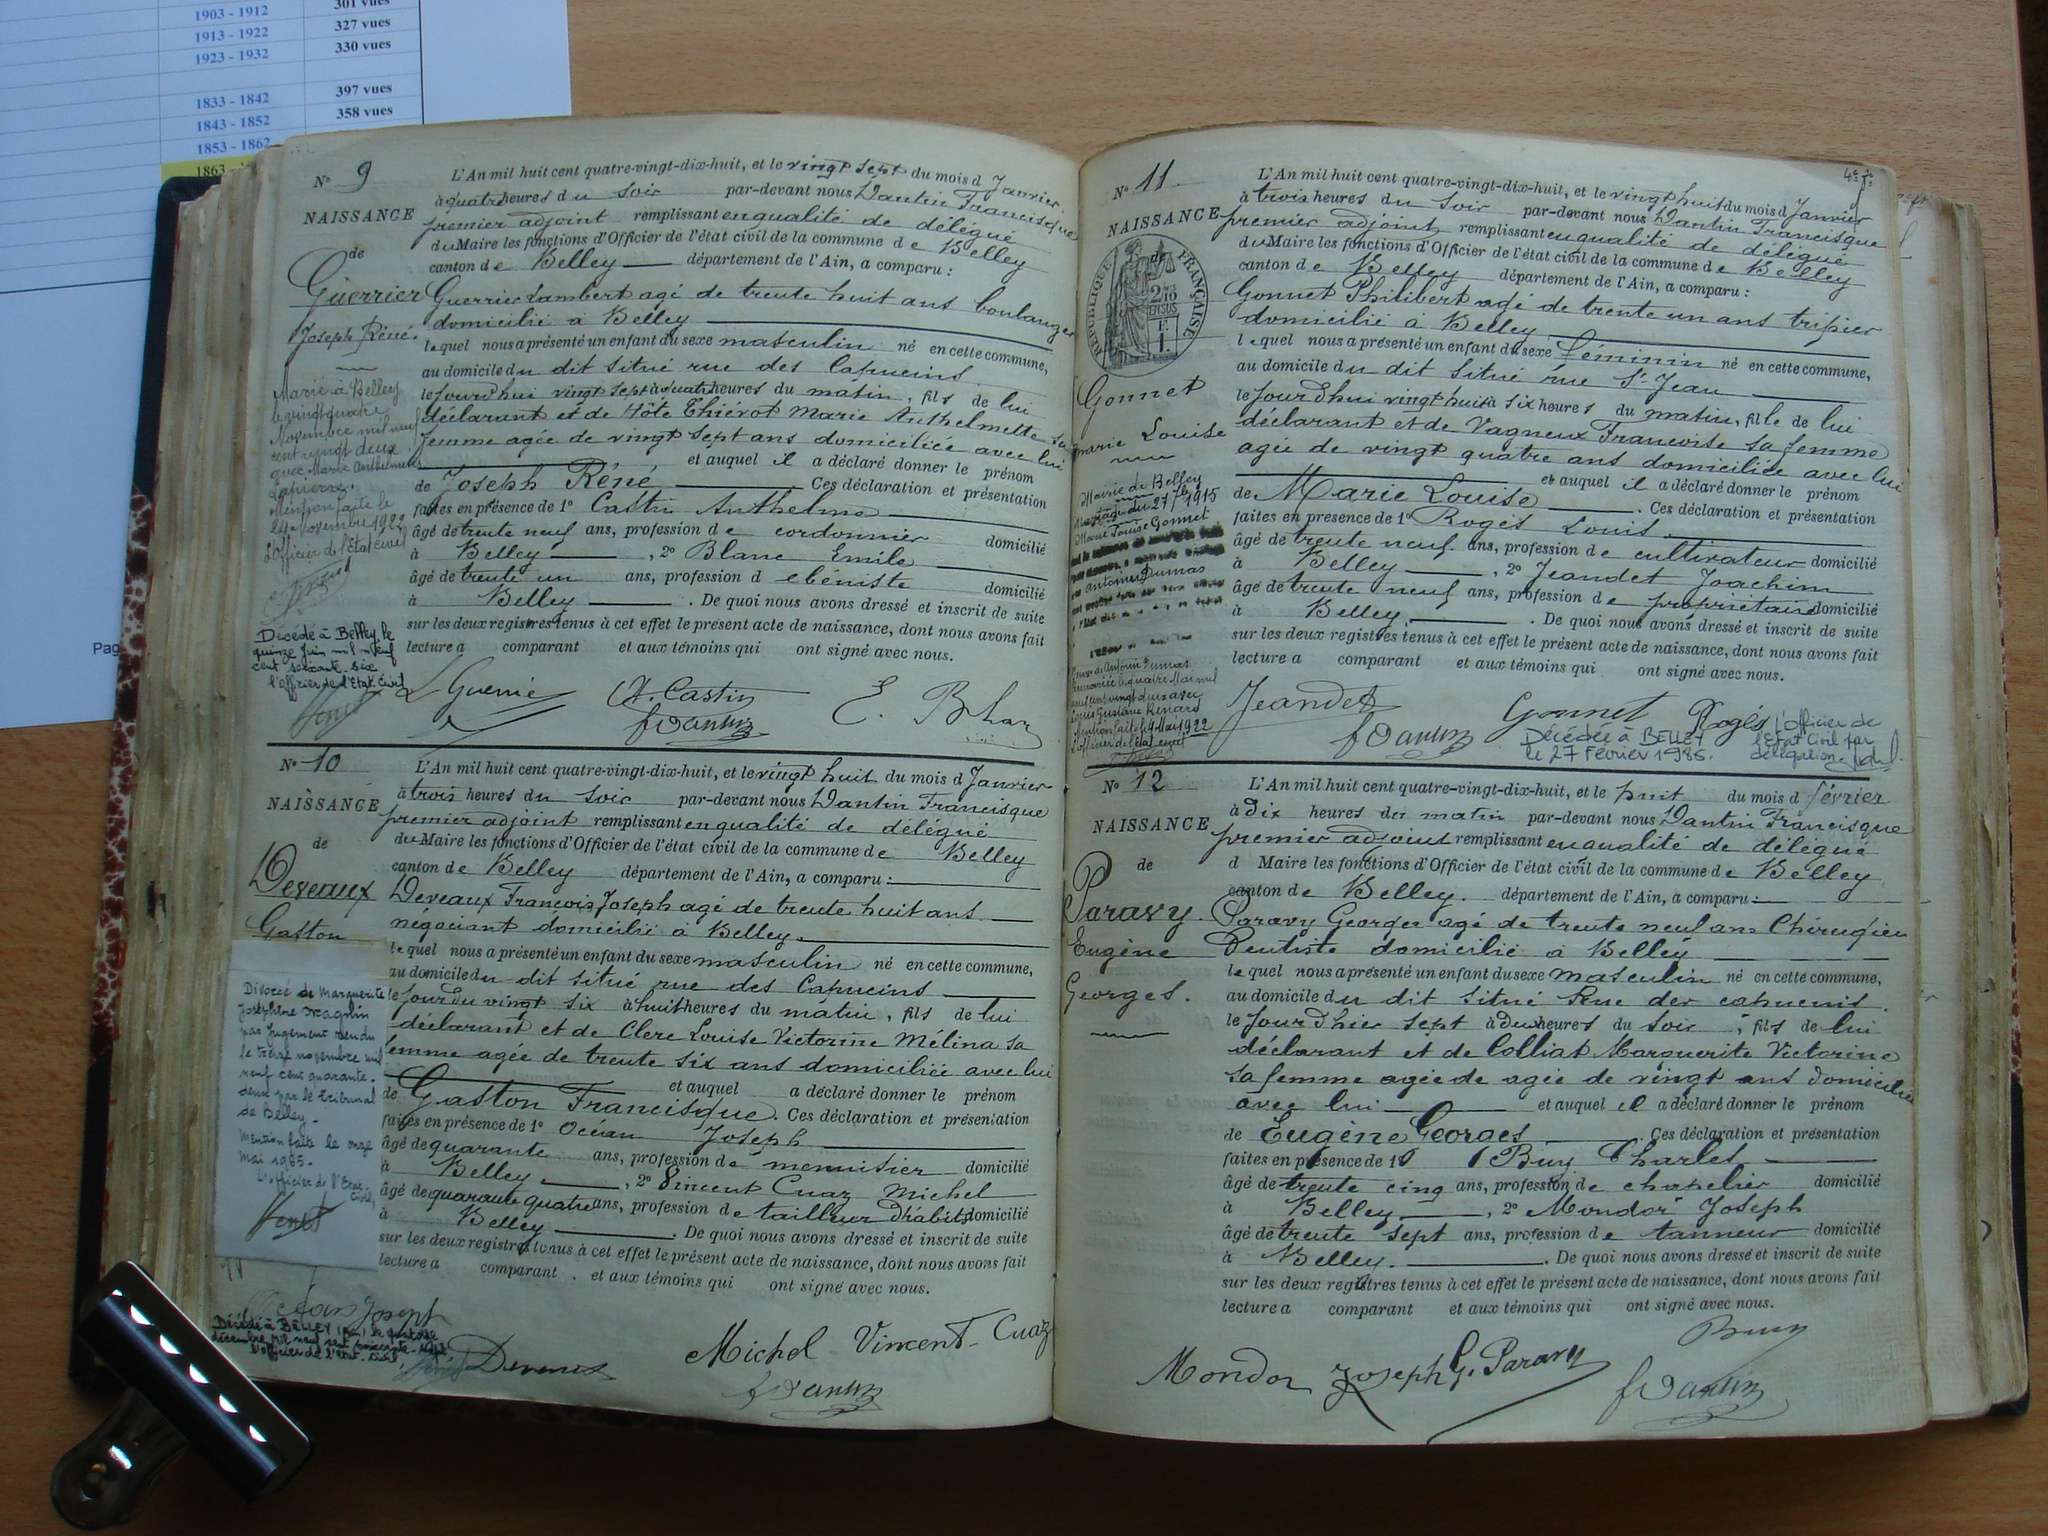 1903 - 1912 301 vues
1913 - 1922 327 vues
1923 - 1932 330 vues
1833 - 1842 397 vues
1843 - 1852 358 vues
1853 - 1862
1863
Pag
N° 9
NAISSANCE
de
Guerrier
Joseph Réné.
Marié à Belley
le vingt quatre
Novembre mil neuf
cent vingt deux
avec Marie Anthelmette
Lapierre.
Mention faite le
novembre 1922
L'Officier de l'état civil
Décédé à Belley le
quinze juin mil neuf
cent soixante-six
l'officier de l'Etat Civil
L'An mil huit cent quatre-vingt-dix-huit, et le vingt sept du mois d Janvier
à quatre heures du soir par-devant nous Dantin Francisque
premier adjoint remplissant en qualité de délégué
du Maire les fonctions d'Officier de l'état civil de la commune de Belley
canton de Belley département de l'Ain, a comparu :
Guerrier Lambert agé de trente huit ans boulanger
domicilié à Belley
lequel nous a présenté un enfant du sexe masculin né en cette commune,
au domicile du dit situé rue des Capucins
le jourdhui vingt sept à quatre heures du matin, fils de lui
déclarant et de Hôte Thiérot Marie Anthelmette sa
femme agée de vingt sept ans domiciliée avec lui
et auquel il a déclaré donner le prénom
de Joseph Réné. Ces déclaration et présentation
faites en présence de 1° Castin Anthelme
âgé de trente neuf ans, profession de cordonnier domicilié
à Belley, 2° Blanc Emile
âgé de trente un ans, profession d ebéniste domicilié
à Belley. De quoi nous avons dressé et inscrit de suite
sur les deux registres tenus à cet effet le présent acte de naissance, dont nous avons fait
lecture a comparant et aux témoins qui ont signé avec nous.
A. Castin
N° 10
NAISSANCE
de
Deveaux
Gaston
Divorcé de Marguerite
Joséphine Magnin
par jugement rendu
le treize novembre mil
neuf cent quarante-
deux par le tribunal
de Belley.
Mention faite le onze
Mai 1965.
L'officier de l'Etat
Civil,
L'An mil huit cent quatre-vingt-dix-huit, et le vingt huit du mois d Janvier
à trois heures du soir par-devant nous Dantin Francisque
premier adjoint remplissant en qualité de délégué
du Maire les fonctions d'Officier de l'état civil de la commune de Belley
canton de Belley département de l'Ain, a comparu :
Deveaux François Joseph agé de trente huit ans
négociant domicilié à Belley.
lequel nous a présenté un enfant du sexe masculin né en cette commune,
au domicile du dit situé rue des Capucins
le jour du vingt six à huit heures du matin, fils de lui
déclarant et de Clerc Louise Victorine Mélina sa
femme agée de trente six ans domiciliée avec lui
et auquel a déclaré donner le prénom
de Gaston Francisque. Ces déclaration et présentation
faites en présence de 1° Océan Joseph
âgé de quarante ans, profession de menuisier domicilié
à Belley, 2° Vincent Cuaz Michel
âgé de quarante quatre ans, profession de tailleur d'habits domicilié
à Belley. De quoi nous avons dressé et inscrit de suite
sur les deux registres tenus à cet effet le présent acte de naissance, dont nous avons fait
lecture a comparant et aux témoins qui ont signé avec nous.
Océan Joseph
Décédé à BELLEY (Ain) le quatorze
décembre mil neuf cent
l'officier de l'état civil
Michel Vincent-Cuaz
N° 11
NAISSANCE
de
RÉPUBLIQUE FRANÇAISE
Gonnet
marie Louise
Mairie de Belley
Mariage du 1915
Marie Louise Gonnet
Antoine Dumas
Veuve de Antoine Dumas
remariée le quatre Mai mil
neuf cent vingt deux avec
Louis Gustave Renard
Mention faite le 4 Mai 1922
L'officier de l'état civil
L'An mil huit cent quatre-vingt-dix-huit, et le vingt huit du mois d Janvier
à trois heures du soir par-devant nous Dantin Francisque
premier adjoint remplissant en qualité de délégué
du Maire les fonctions d'Officier de l'état civil de la commune de Belley
canton de Belley département de l'Ain, a comparu :
Gonnet Philibert agé de trente un ans tripier
domicilié à Belley
lequel nous a présenté un enfant du sexe féminin né en cette commune,
au domicile du dit situé rue St Jean
le jourdhui vingt huit à six heures du matin, fille de lui
déclarant et de Vagneux Francoise sa femme
agée de vingt quatre ans domiciliée avec lui
et auquel il a déclaré donner le prénom
de Marie Louise. Ces déclaration et présentation
faites en présence de 1° Rogès Louis
âgé de trente neuf ans, profession de cultivateur domicilié
à Belley, 2° Jeandet Joachim
âgé de trente neuf ans, profession de propriétaire domicilié
à Belley. De quoi nous avons dressé et inscrit de suite
sur les deux registres tenus à cet effet le présent acte de naissance, dont nous avons fait
lecture a comparant et aux témoins qui ont signé avec nous.
Jeandet Gonnet Rogès
Décédée à BELLEY
le 27 Février 1985.
l'officier de
l'état civil par
délégation.
N° 12
NAISSANCE
de
Paravy.
Eugène
Georges.
L'An mil huit cent quatre-vingt-dix-huit, et le huit du mois d février
à Dix heures du matin par-devant nous Dantin Francisque
premier adjoint remplissant en qualité de délégué
d Maire les fonctions d'Officier de l'état civil de la commune de Belley
canton de Belley. département de l'Ain, a comparu :
Paravy Georges agé de trente neuf ans Chirugien
Dentiste domicilié à Belley
lequel nous a présenté un enfant du sexe masculin né en cette commune,
au domicile du dit situé Rue des capucins.
le jour d'hier sept à deux heures du soir, fils de lui
déclarant et de Colliat Marguerite Victorine
sa femme agée de agée de vingt ans domiciliée
avec lui et auquel il a déclaré donner le prénom
de Eugène Georges Ces déclaration et présentation
faites en présence de 1° Buy Charles
âgé de trente cinq ans, profession de chapelier domicilié
à Belley, 2° Mondor Joseph
âgé de trente sept ans, profession de tanneur domicilié
à Belley. De quoi nous avons dressé et inscrit de suite
sur les deux registres tenus à cet effet le présent acte de naissance, dont nous avons fait
lecture a comparant et aux témoins qui ont signé avec nous.
Mondor Joseph G. Paravy